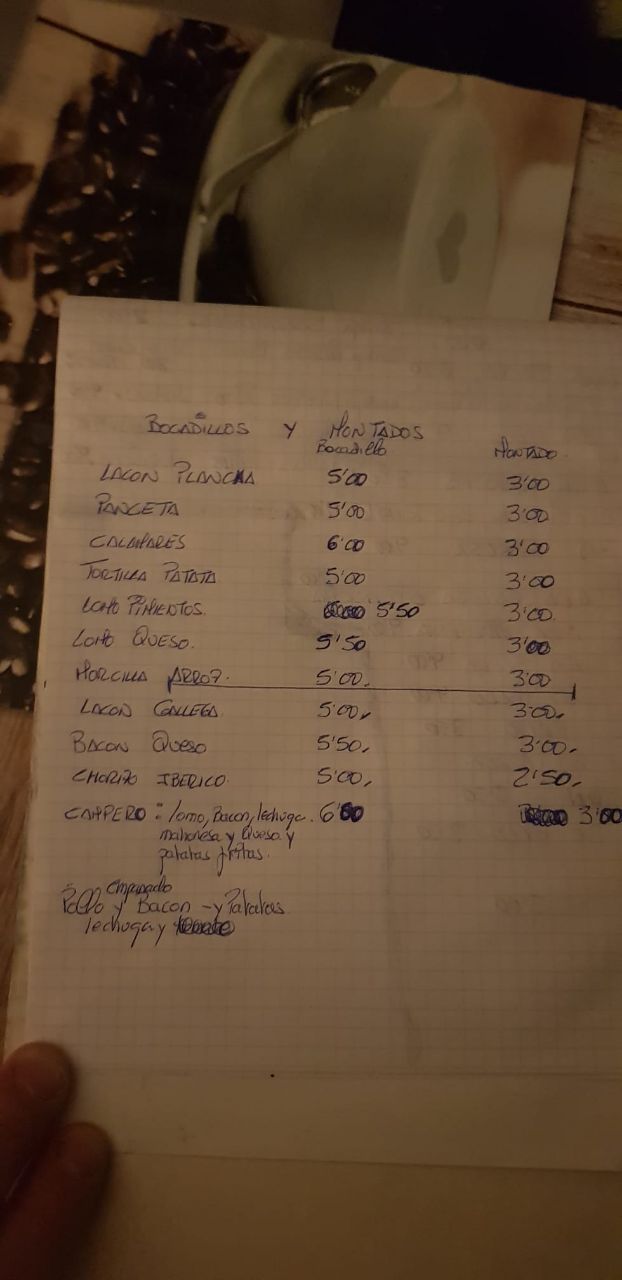 BOCADILLOS Y MONTADOS
Bocadillo MONTADO.
LACON PLANCHA 5'00 3'00
PANCETA 5'00 3'00
CALAMARES 6'00 3'00
TORTILLA PATATA 5'00 3'00
LOMO PIMIENTOS. 5'50 3'00
LOMO QUESO. 5'50 3'00
MORCILLA ARROZ. 5'00. 3'00
LACON GALLEGA. 5'00, 3'00,
BACON QUESO 5'50, 3'00,
CHORIZO IBERICO. 5'00, 2'50,
CAMPERO: lomo, Bacon, lechuga. 6'00 3'00
mahonesa y Queso y
patatas fritas.
empanado
Pollo y Bacon - y Patatas.
lechuga y